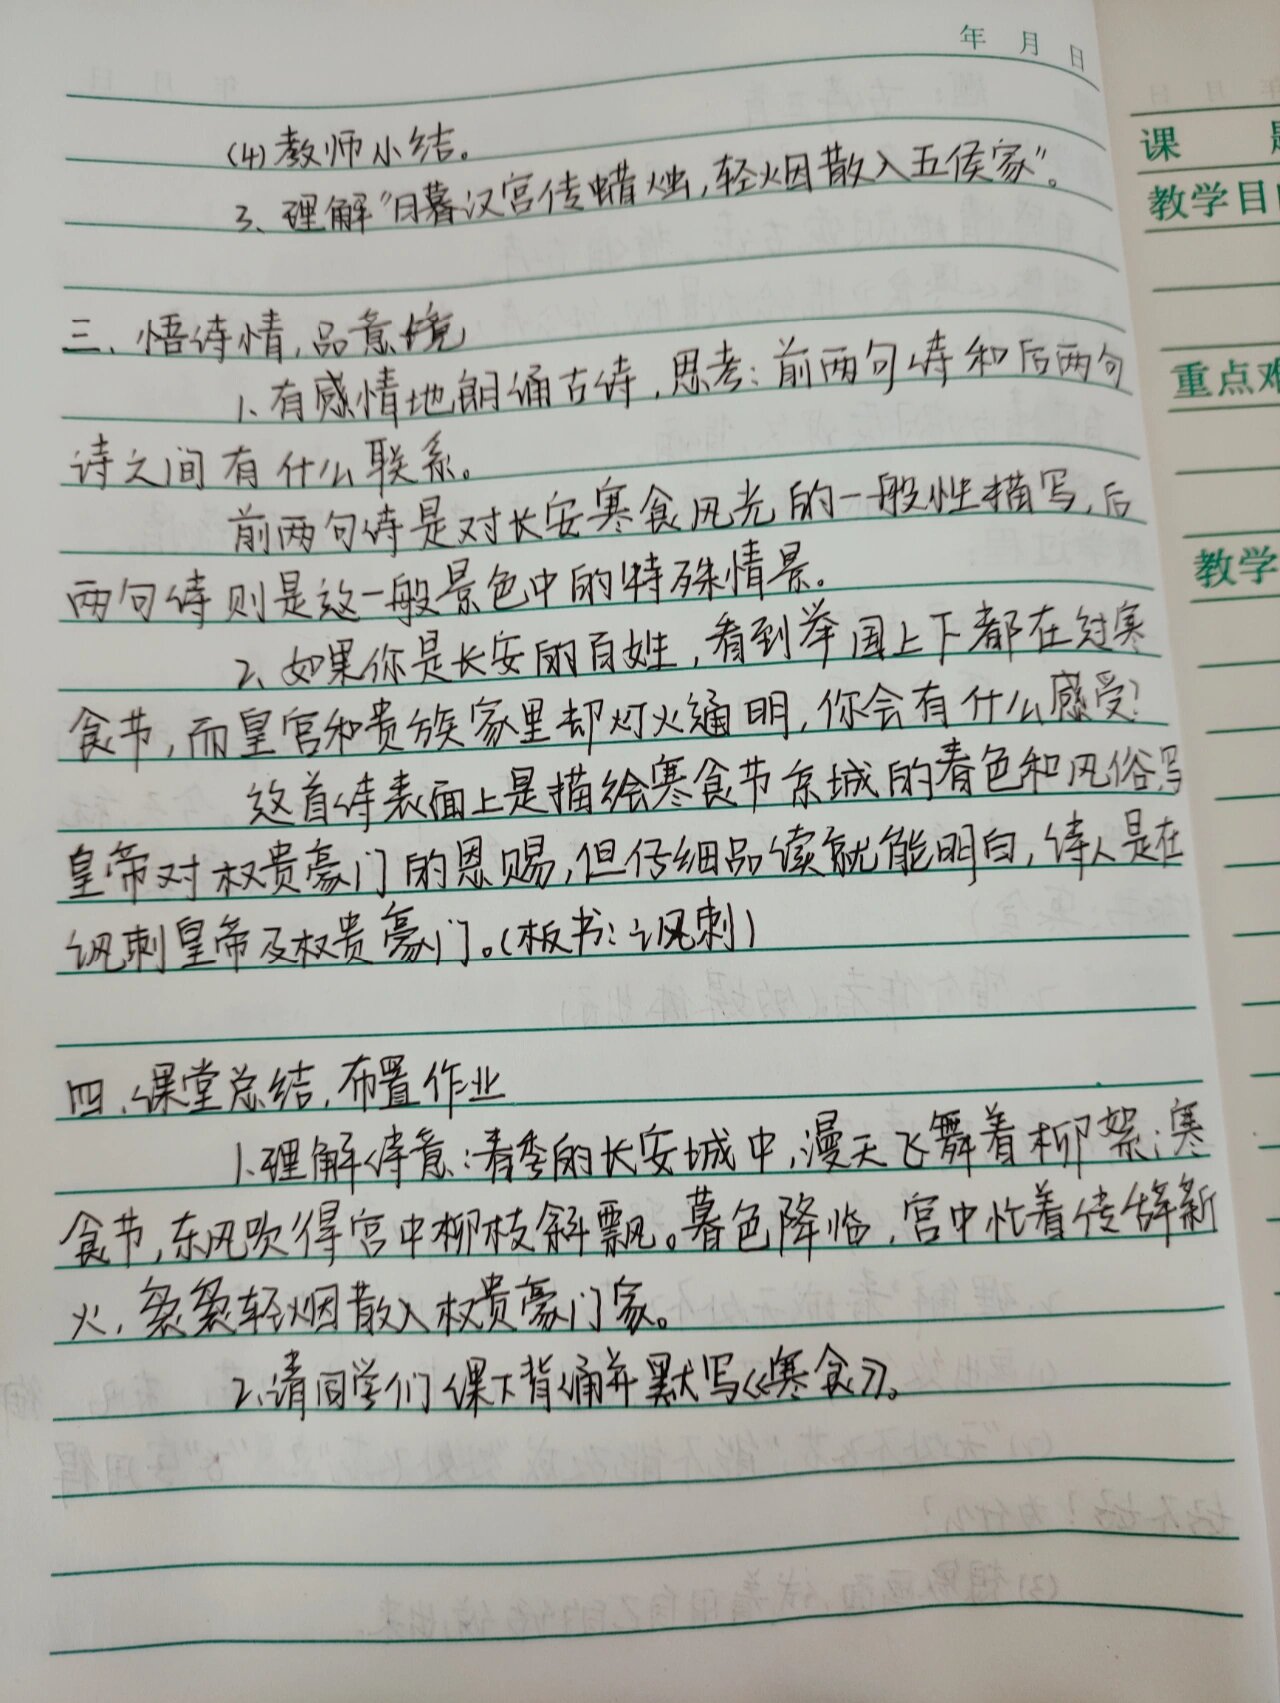 年 月 日
(4)教师小结。
3、理解"日暮汉宫传蜡烛,轻烟散入五侯家"。
三、悟诗情,品意境
1、有感情地朗诵古诗,思考:前两句诗和后两句
诗之间有什么联系。
前两句诗是对长安寒食风光的一般性描写,后
两句诗则是这一般景色中的特殊情景。
2、如果你是长安的百姓,看到举国上下都在过寒
食节,而皇宫和贵族家里却灯火通明,你会有什么感受?
这首诗表面上是描绘寒食节京城的春色和风俗,写
皇帝对权贵豪门的恩赐,但仔细品读就能明白,诗人是在
讽刺皇帝及权贵豪门。(板书:讽刺)
四、课堂总结,布置作业
1、理解诗意:春季的长安城中,漫天飞舞着柳絮;寒
食节,东风吹得宫中柳枝斜飘。暮色降临,宫中忙着传烛新
火,袅袅轻烟散入权贵豪门家。
2、请同学们课下背诵并默写《寒食》。
课
教学目
重点难
教学